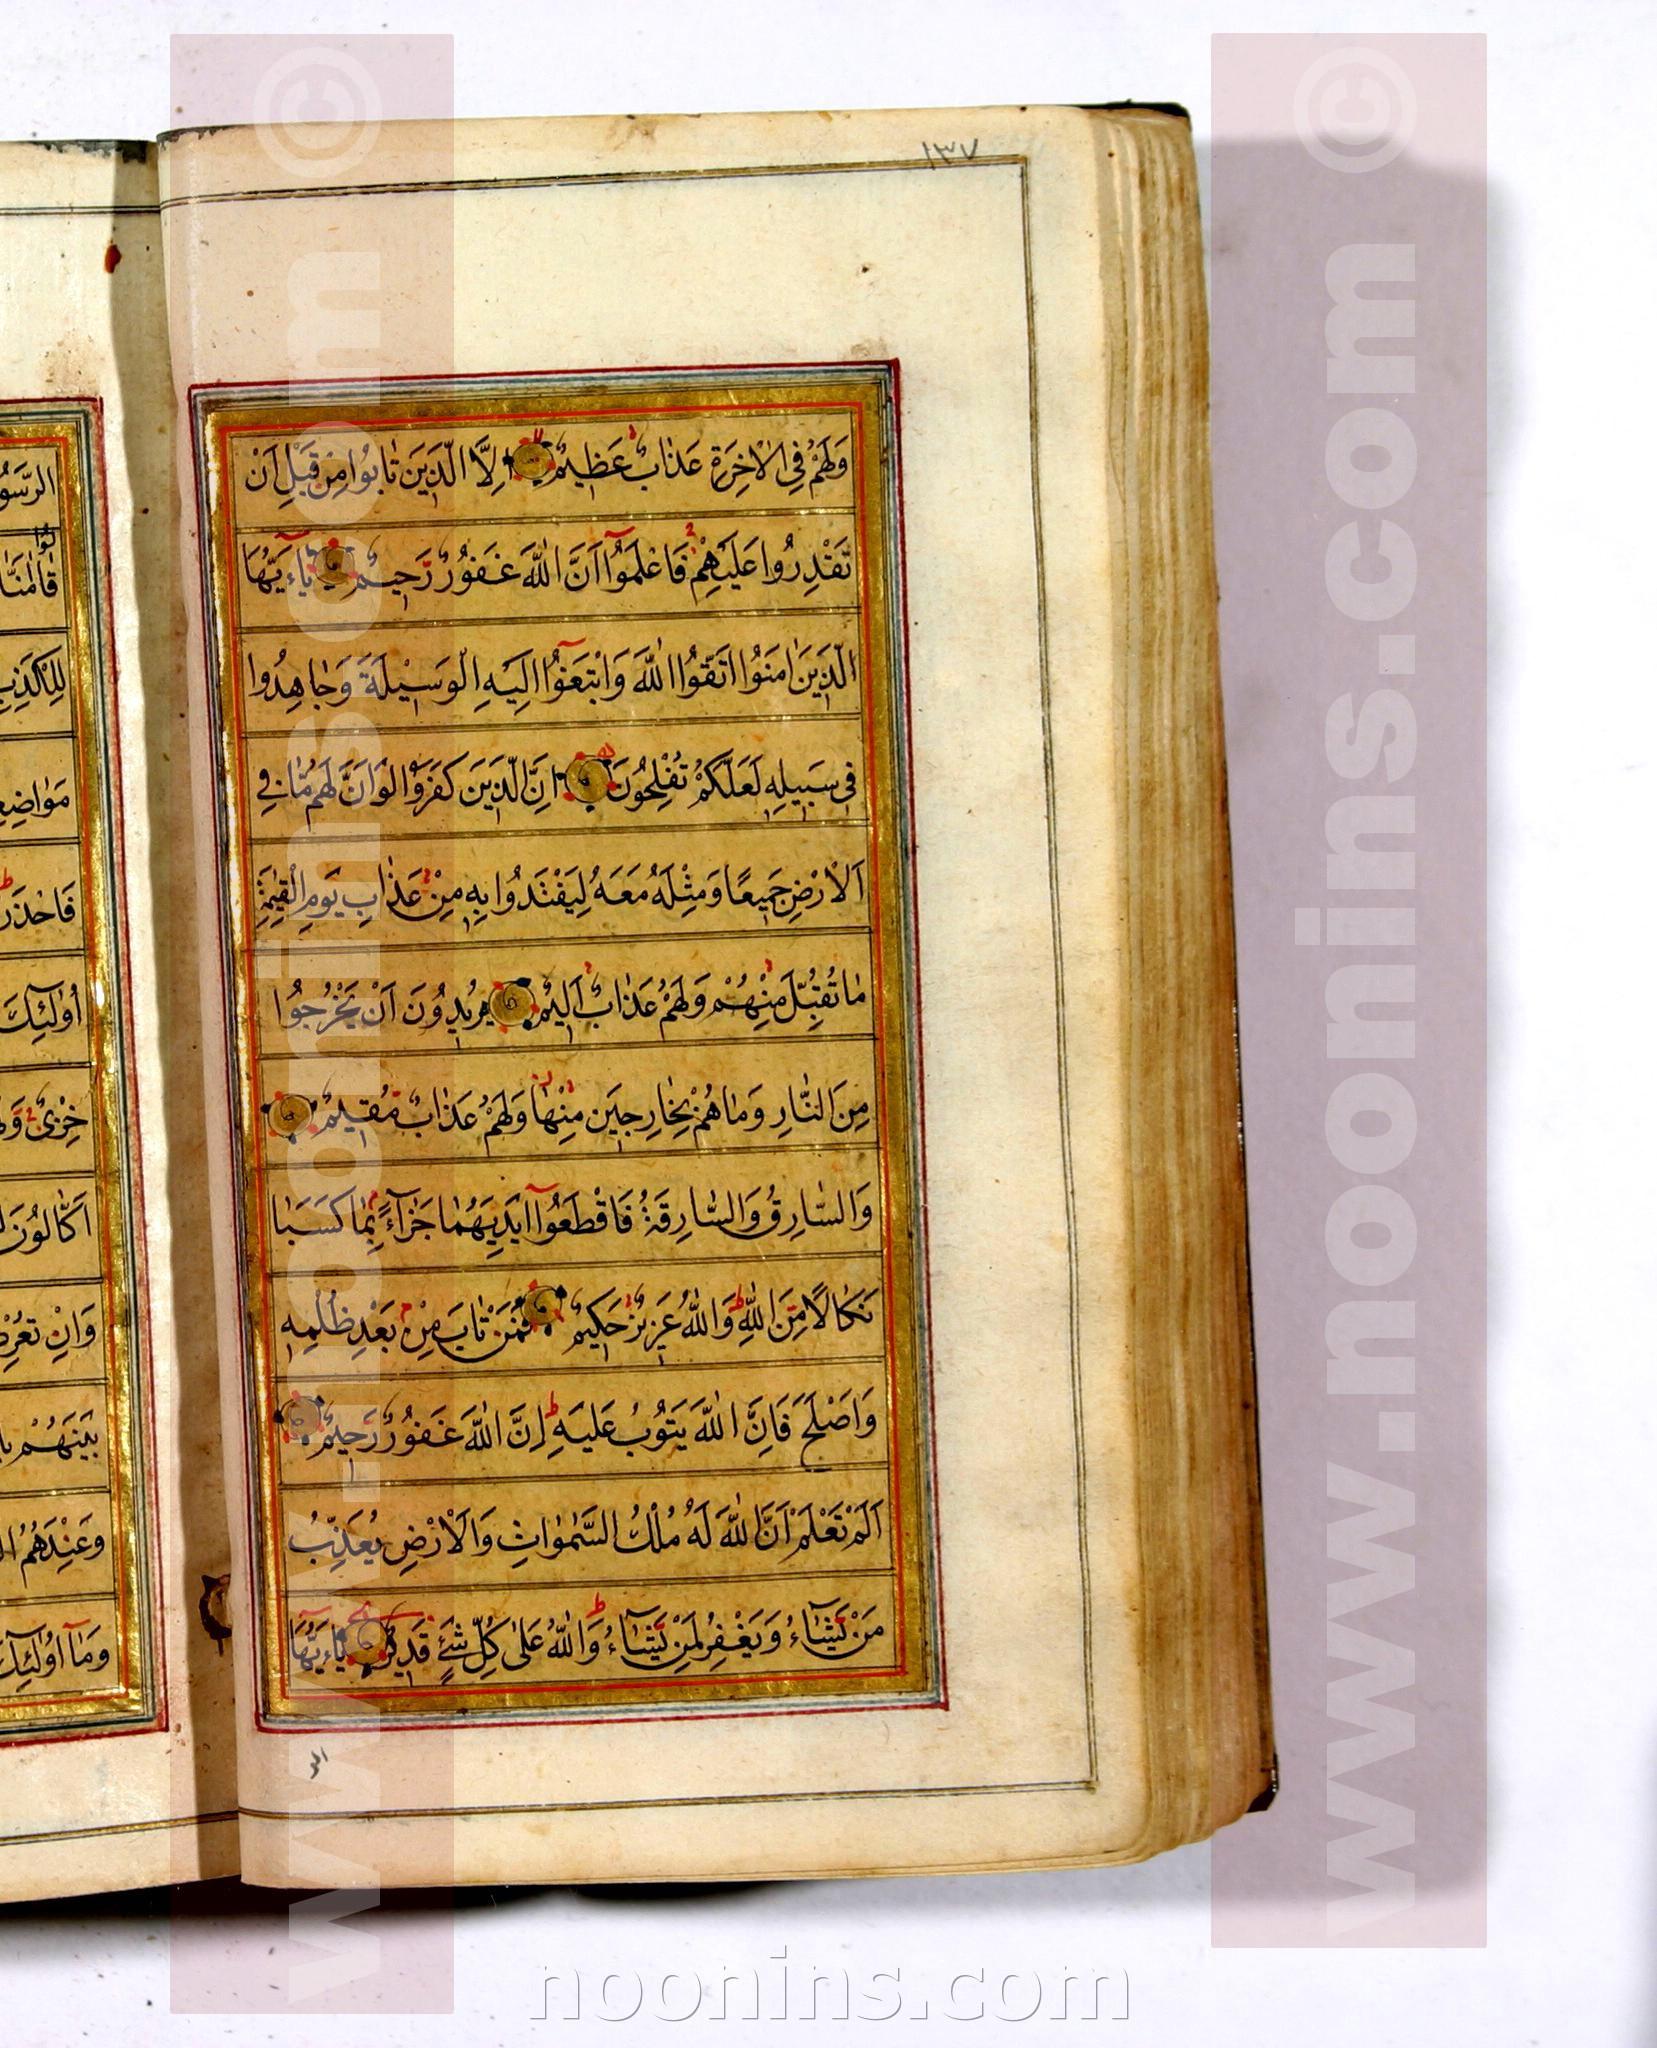 ١٣٧
وَلَهُمْ فِي الْاٰخِرَةِ عَذَابٌ عَظِيمٌ اِلَّا الَّذِينَ تَابُوا مِنْ قَبْلِ اَنْ
تَقْدِرُوا عَلَيْهِمْ فَاعْلَمُوٓا اَنَّ اللّٰهَ غَفُورٌ رَحِيمٌ يَآءَيُّهَا
الَّذِينَ اٰمَنُوا اتَّقُوا اللّٰهَ وَابْتَغُوٓا اِلَيْهِ الْوَسِيلَةَ وَجَاهِدُوا
فِي سَبِيلِهِ لَعَلَّكُمْ تُفْلِحُونَ اِنَّ الَّذِينَ كَفَرُوا لَوْ اَنَّ لَهُمْ مَا فِي
الْاَرْضِ جَمِيعًا وَمِثْلَهُ مَعَهُ لِيَفْتَدُوا بِهِ مِنْ عَذَابِ يَوْمِ الْقِيٰمَةِ
مَا تُقُبِّلَ مِنْهُمْ وَلَهُمْ عَذَابٌ اَلِيمٌ يُرِيدُونَ اَنْ يَخْرُجُوا
مِنَ النَّارِ وَمَا هُمْ بِخَارِجِينَ مِنْهَا وَلَهُمْ عَذَابٌ مُقِيمٌ
وَالسَّارِقُ وَالسَّارِقَةُ فَاقْطَعُوٓا اَيْدِيَهُمَا جَزَآءً بِمَا كَسَبَا
نَكَالًا مِنَ اللّٰهِ وَاللّٰهُ عَزِيزٌ حَكِيمٌ فَمَنْ تَابَ مِنْ بَعْدِ ظُلْمِهِ
وَاَصْلَحَ فَاِنَّ اللّٰهَ يَتُوبُ عَلَيْهِ اِنَّ اللّٰهَ غَفُورٌ رَحِيمٌ
اَلَمْ تَعْلَمْ اَنَّ اللّٰهَ لَهُ مُلْكُ السَّمٰوَاتِ وَالْاَرْضِ يُعَذِّبُ
مَنْ يَشَآءُ وَيَغْفِرُ لِمَنْ يَشَآءُ وَاللّٰهُ عَلٰى كُلِّ شَيْءٍ قَدِيرٌ يَآءَيُّهَا
الر
الرَّسُو
مَوَاضِعِ
فَاحْذَر
اُولٰٓئِكَ
خِزْيٌ
اَكَّالُونَ
وَاِنْ تُعْرِض
بَيْنَهُمْ
وَعِنْدَهُمُ
وَمَآ اُولٰٓئِكَ
www.noonins.com ©
www.noonins.com ©
noonins.com